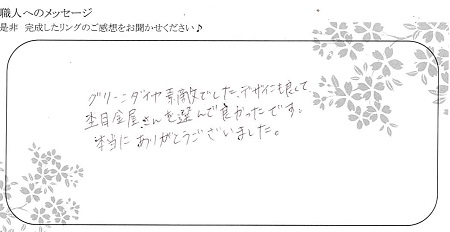 職人へのメッセージ
是非 完成したリングのご感想をお聞かせください♪
グリーンダイヤ素敵でした。デザインも良くて
杢目金屋さんを選んで良かったです。
本当にありがとうございました。